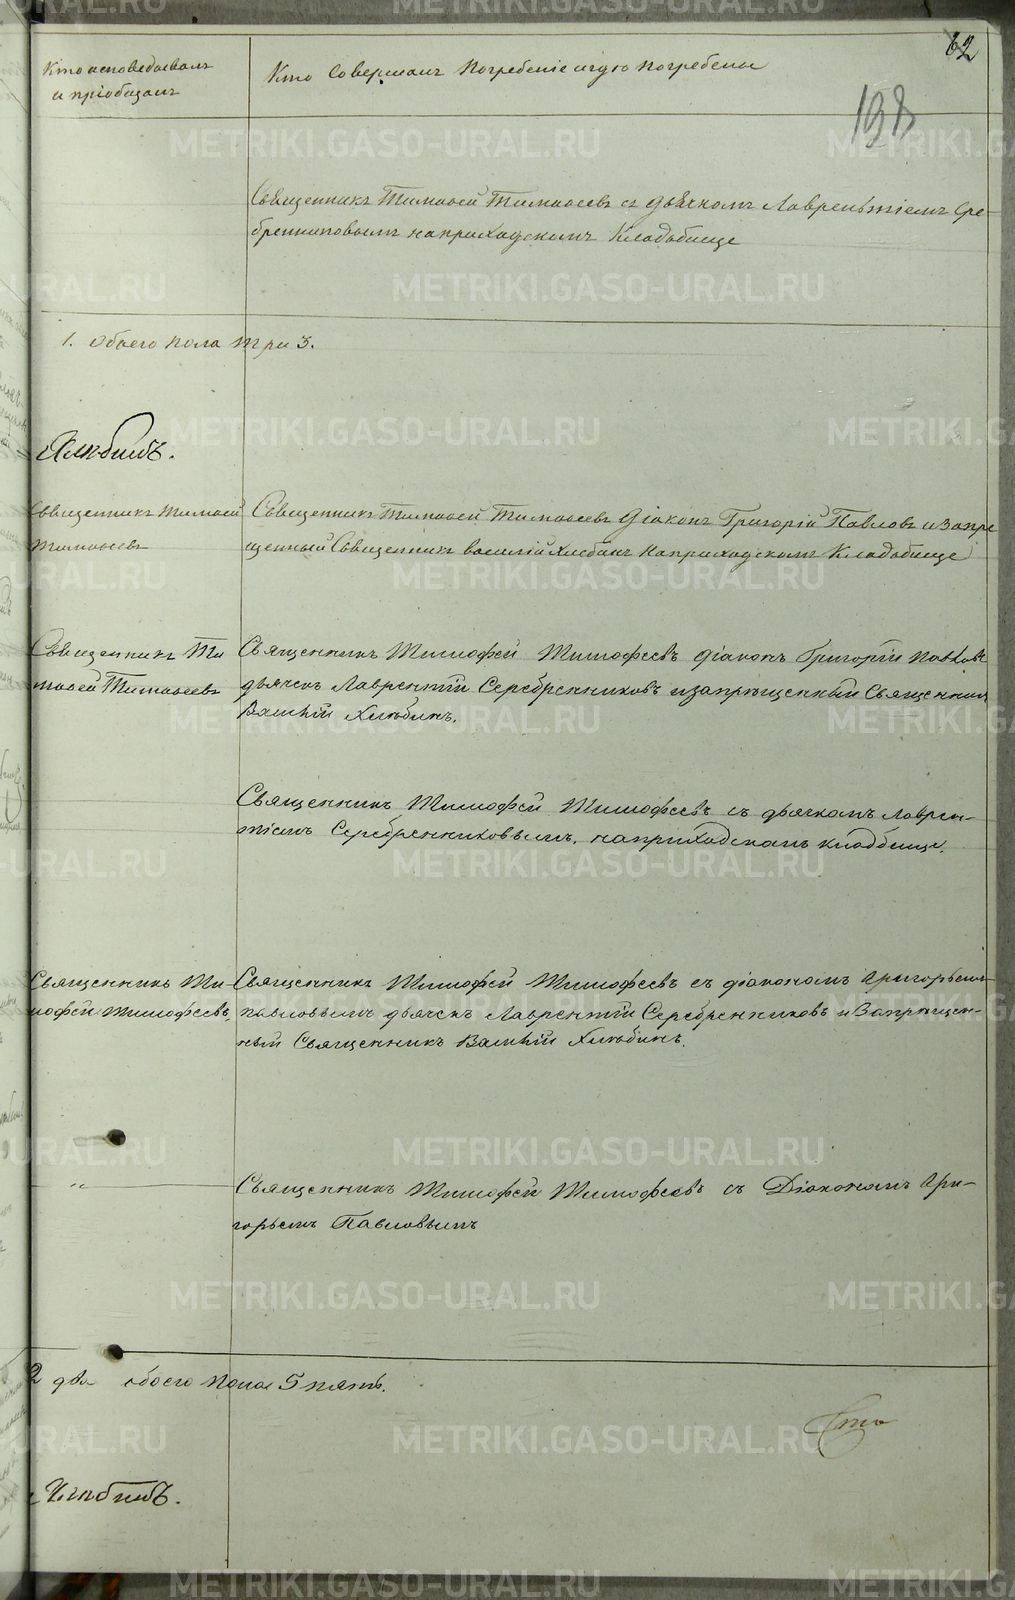 62
198
Кто исповедывалъ
и пріобщалъ
Кто Совершалъ Погребеніе и гдѣ погребены
Священникъ Тимофей Тимофеевъ съ дьячкомъ Лаврентіемъ Сре-
бренниковымъ на приходскомъ Кладбище
1. Обоего пола три 3.
Священникъ Тимофей
Тимофеевъ
Священникъ Тимофей Тимофеевъ Діаконъ Григорій Павловъ и Запре
щенный Священникъ василій Хлѣбинъ на приходскомъ Кладбище
Священникъ Ти
мофей Тимофеевъ
Священникъ Тимофей Тимофеевъ діаконъ Григорій Павловъ
дьячекъ Лаврентій Серебренниковъ и запрѣщенный Священник
Василій Хлѣбинъ.
Священникъ Тимофей Тимофеевъ съ дьячкомъ Лаврен-
тіемъ Серебренниковымъ, на приходскомъ кладбище.
Священникъ Ти-
мофей Тимофеевъ,
Священникъ Тимофей Тимофеевъ съ діакономъ Григорьемъ
Павловымъ дьячекъ Лаврентій Серебренниковъ и Запрѣщен-
ный Священникъ Василій Хлѣбинъ.
Священникъ Тимофей Тимофеевъ съ Діакономъ Гри-
горьемъ Павловымъ
2 два обоего пола 5 пять.
METRIKI.GASO-URAL.RU